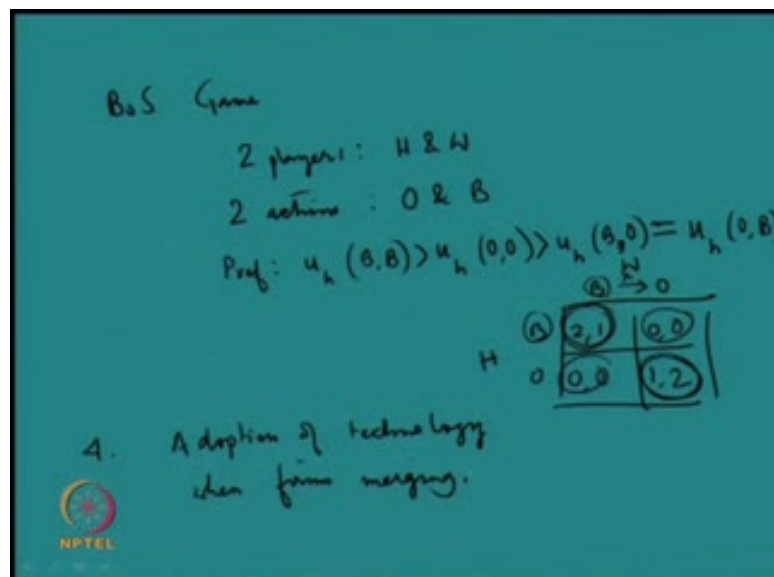 BoS Game
2 players: H & W
2 actions: O & B
Pref: u_h (B,B) > u_h (O,O) > u_h (B,O) = u_h (O,B)
W
B O
H B 2,1 0,0
O 0,0 1,2
4. Adoption of technology
when firms merging.
NPTEL